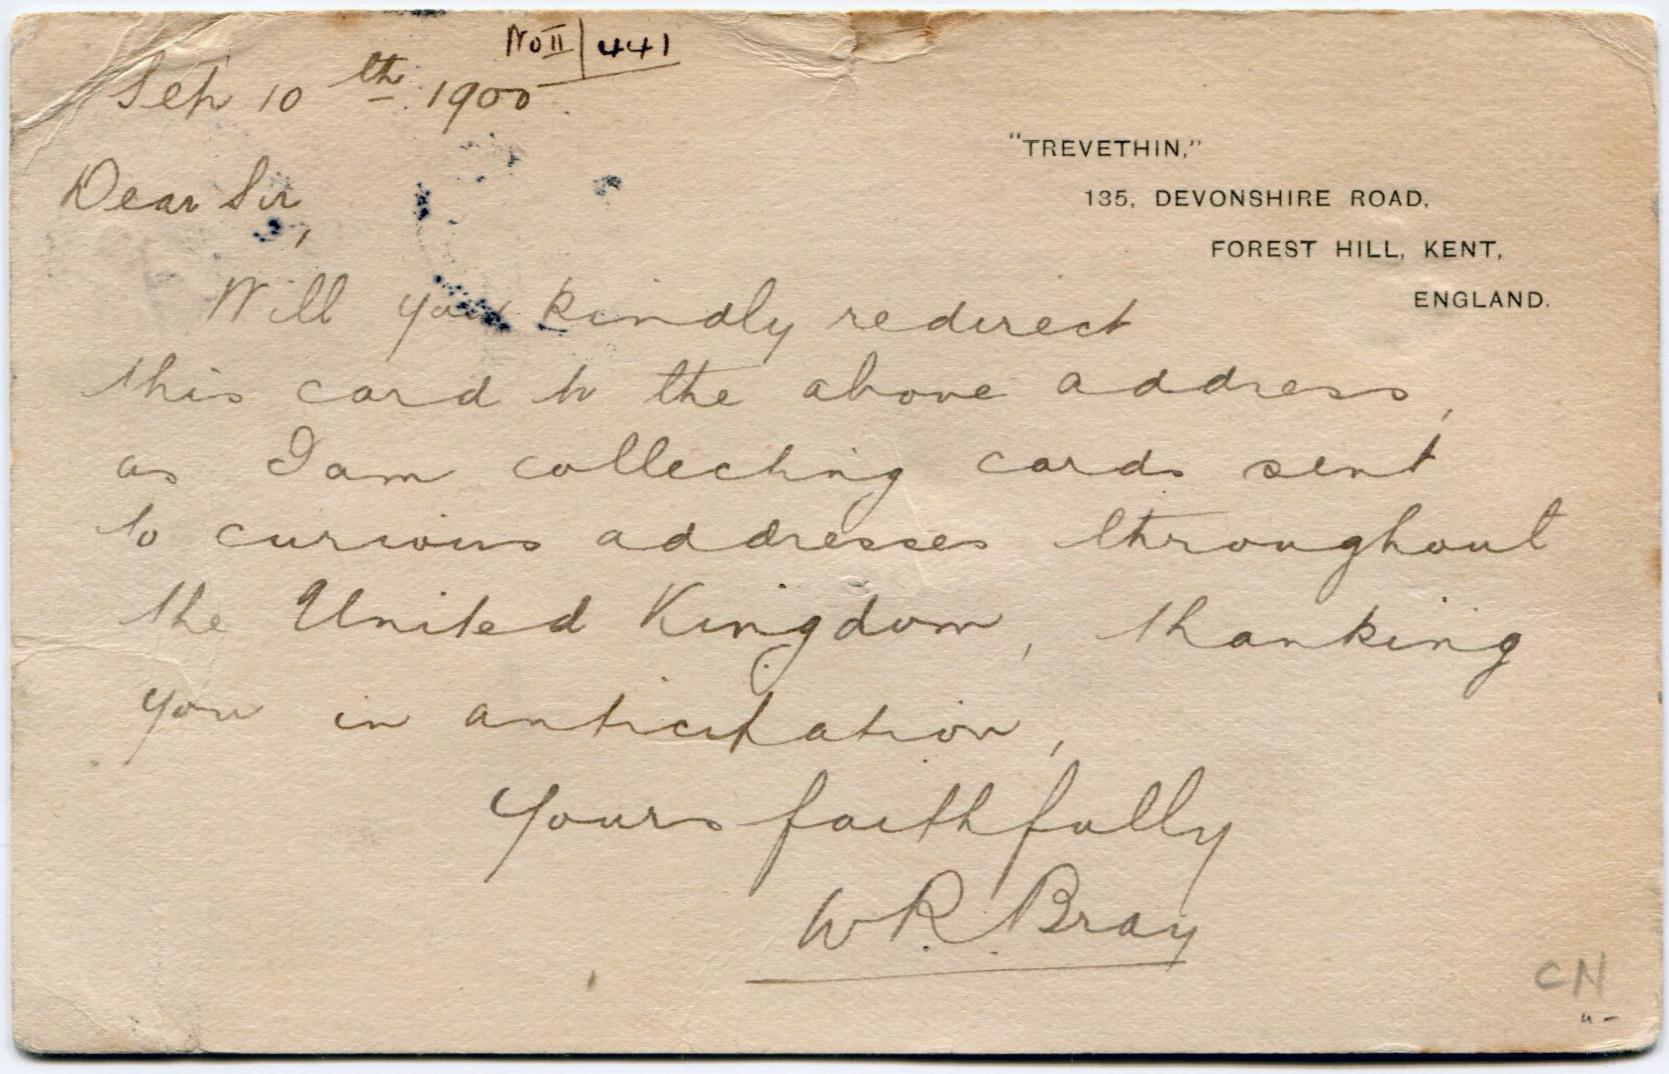 No II | 441
Sep 10th 1900
"TREVETHIN,"
135, DEVONSHIRE ROAD,
FOREST HILL, KENT,
ENGLAND.
Dear Sir,
Will you kindly redirect
this card to the above address,
as I am collecting cards sent
to curious addresses throughout
the United Kingdom, thanking
you in anticipation,
Yours faithfully
W.R. Bray
CN